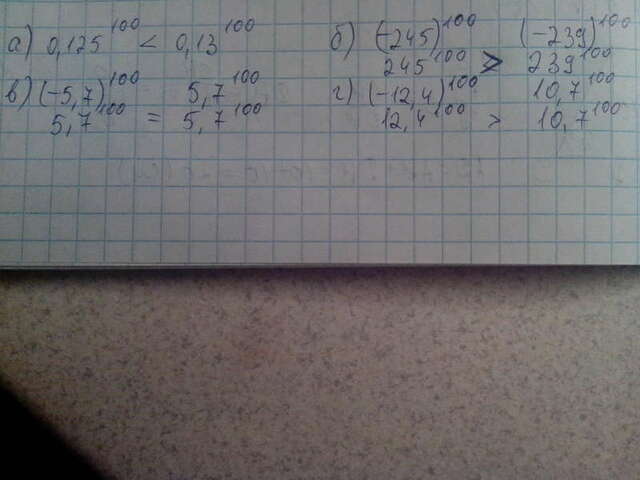 а) 0,125¹⁰⁰ < 0,13¹⁰⁰
б) (-245)¹⁰⁰ (-239)¹⁰⁰
245¹⁰⁰ > 239¹⁰⁰
в) (-5,7)¹⁰⁰ 5,7¹⁰⁰
5,7¹⁰⁰ = 5,7¹⁰⁰
г) (-12,4)¹⁰⁰ 10,7¹⁰⁰
12,4¹⁰⁰ > 10,7¹⁰⁰